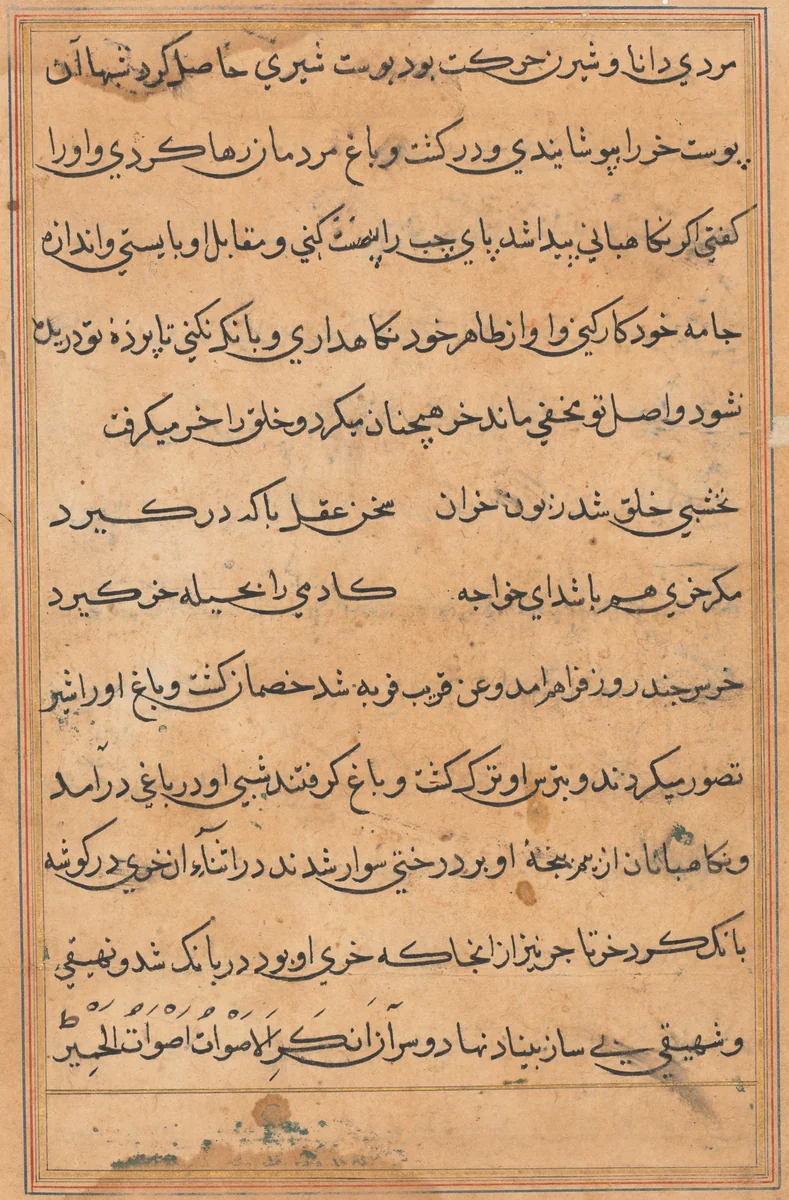 مردي دانا و شيرن حركت بود پوست شيري حاصل كرد شبها آن
پوست خر را بپوشايندي و در كشت و باغ مردمان رها كردي و او را
كفتي اكر نكاهباني پيدا شد پاي چپ را پيش كني و مقابل او بايستي و اندازه
جامه خود كار كني و او از ظاهر خود نكاهداري و بانك نكني تا پردۀ تو دريده
نشود و اصل تو مخفي ماند خر همچنان ميكرد و خلق را خر ميكرفت
نخشبي خلق شد زبون خران سخن عقل با كه در كيرد
مكر خري هم باشد اي خواجه كادمي را بحيله خر كيرد
خر سر چند روز فراهم امد و عن قريب فربه شد خصمان كشت و باغ او را شير
تصور ميكردند و بترس او ترك كشت و باغ كرفتند شبي او در باغي درآمد
و نكاهبانان از بيم پنجۀ او بر درختي سوار شدند در اثنآء ان خري در كوشه
بانك كرد خر تاجر نيز از انجا كه خري او بود در بانك شد و نهيقي
و شهيقي بي ساز بنياد نهاد و سر آن اَنكَرِ الاَصْواتُ اَصْوَاتُ الحَمِيْر